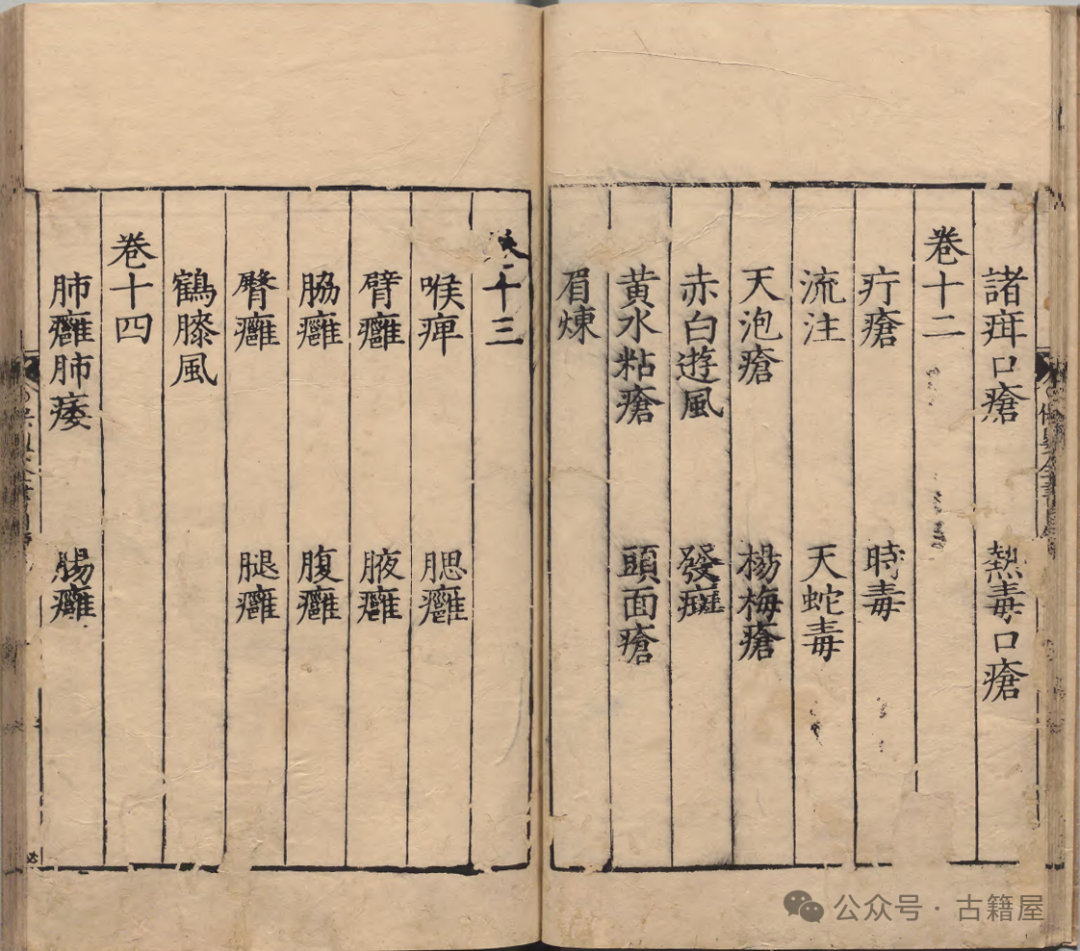 諸疳口瘡 熱毒口瘡
卷十二
疔瘡 時毒
流注 天蛇毒
天泡瘡 楊梅瘡
赤白遊風 發斑
黃水粘瘡 頭面瘡
眉煉
十三
喉痺 腮癰
臂癰 腋癰
脇癰 腹癰
臀癰 腿癰
鶴膝風
卷十四
肺癰肺痿 腸癰
公众号 · 古籍屋